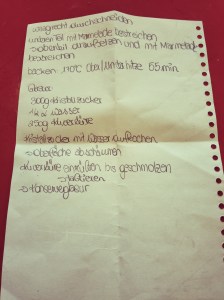 waagrecht durchschneiden
unteren Teil mit Marmelade bestreichen
→ oberteil draufsetzen und mit Marmelade
bestreichen
backen 170°C Ober/Unterhitze 55min
Glasur
300g Kristallzucker
Wasser
250g Kuvertüre
Kristallzucker mit Wasser aufkochen
→ Oberfläche abschäumen
→ Kuvertüre einrühren bis geschmolzen